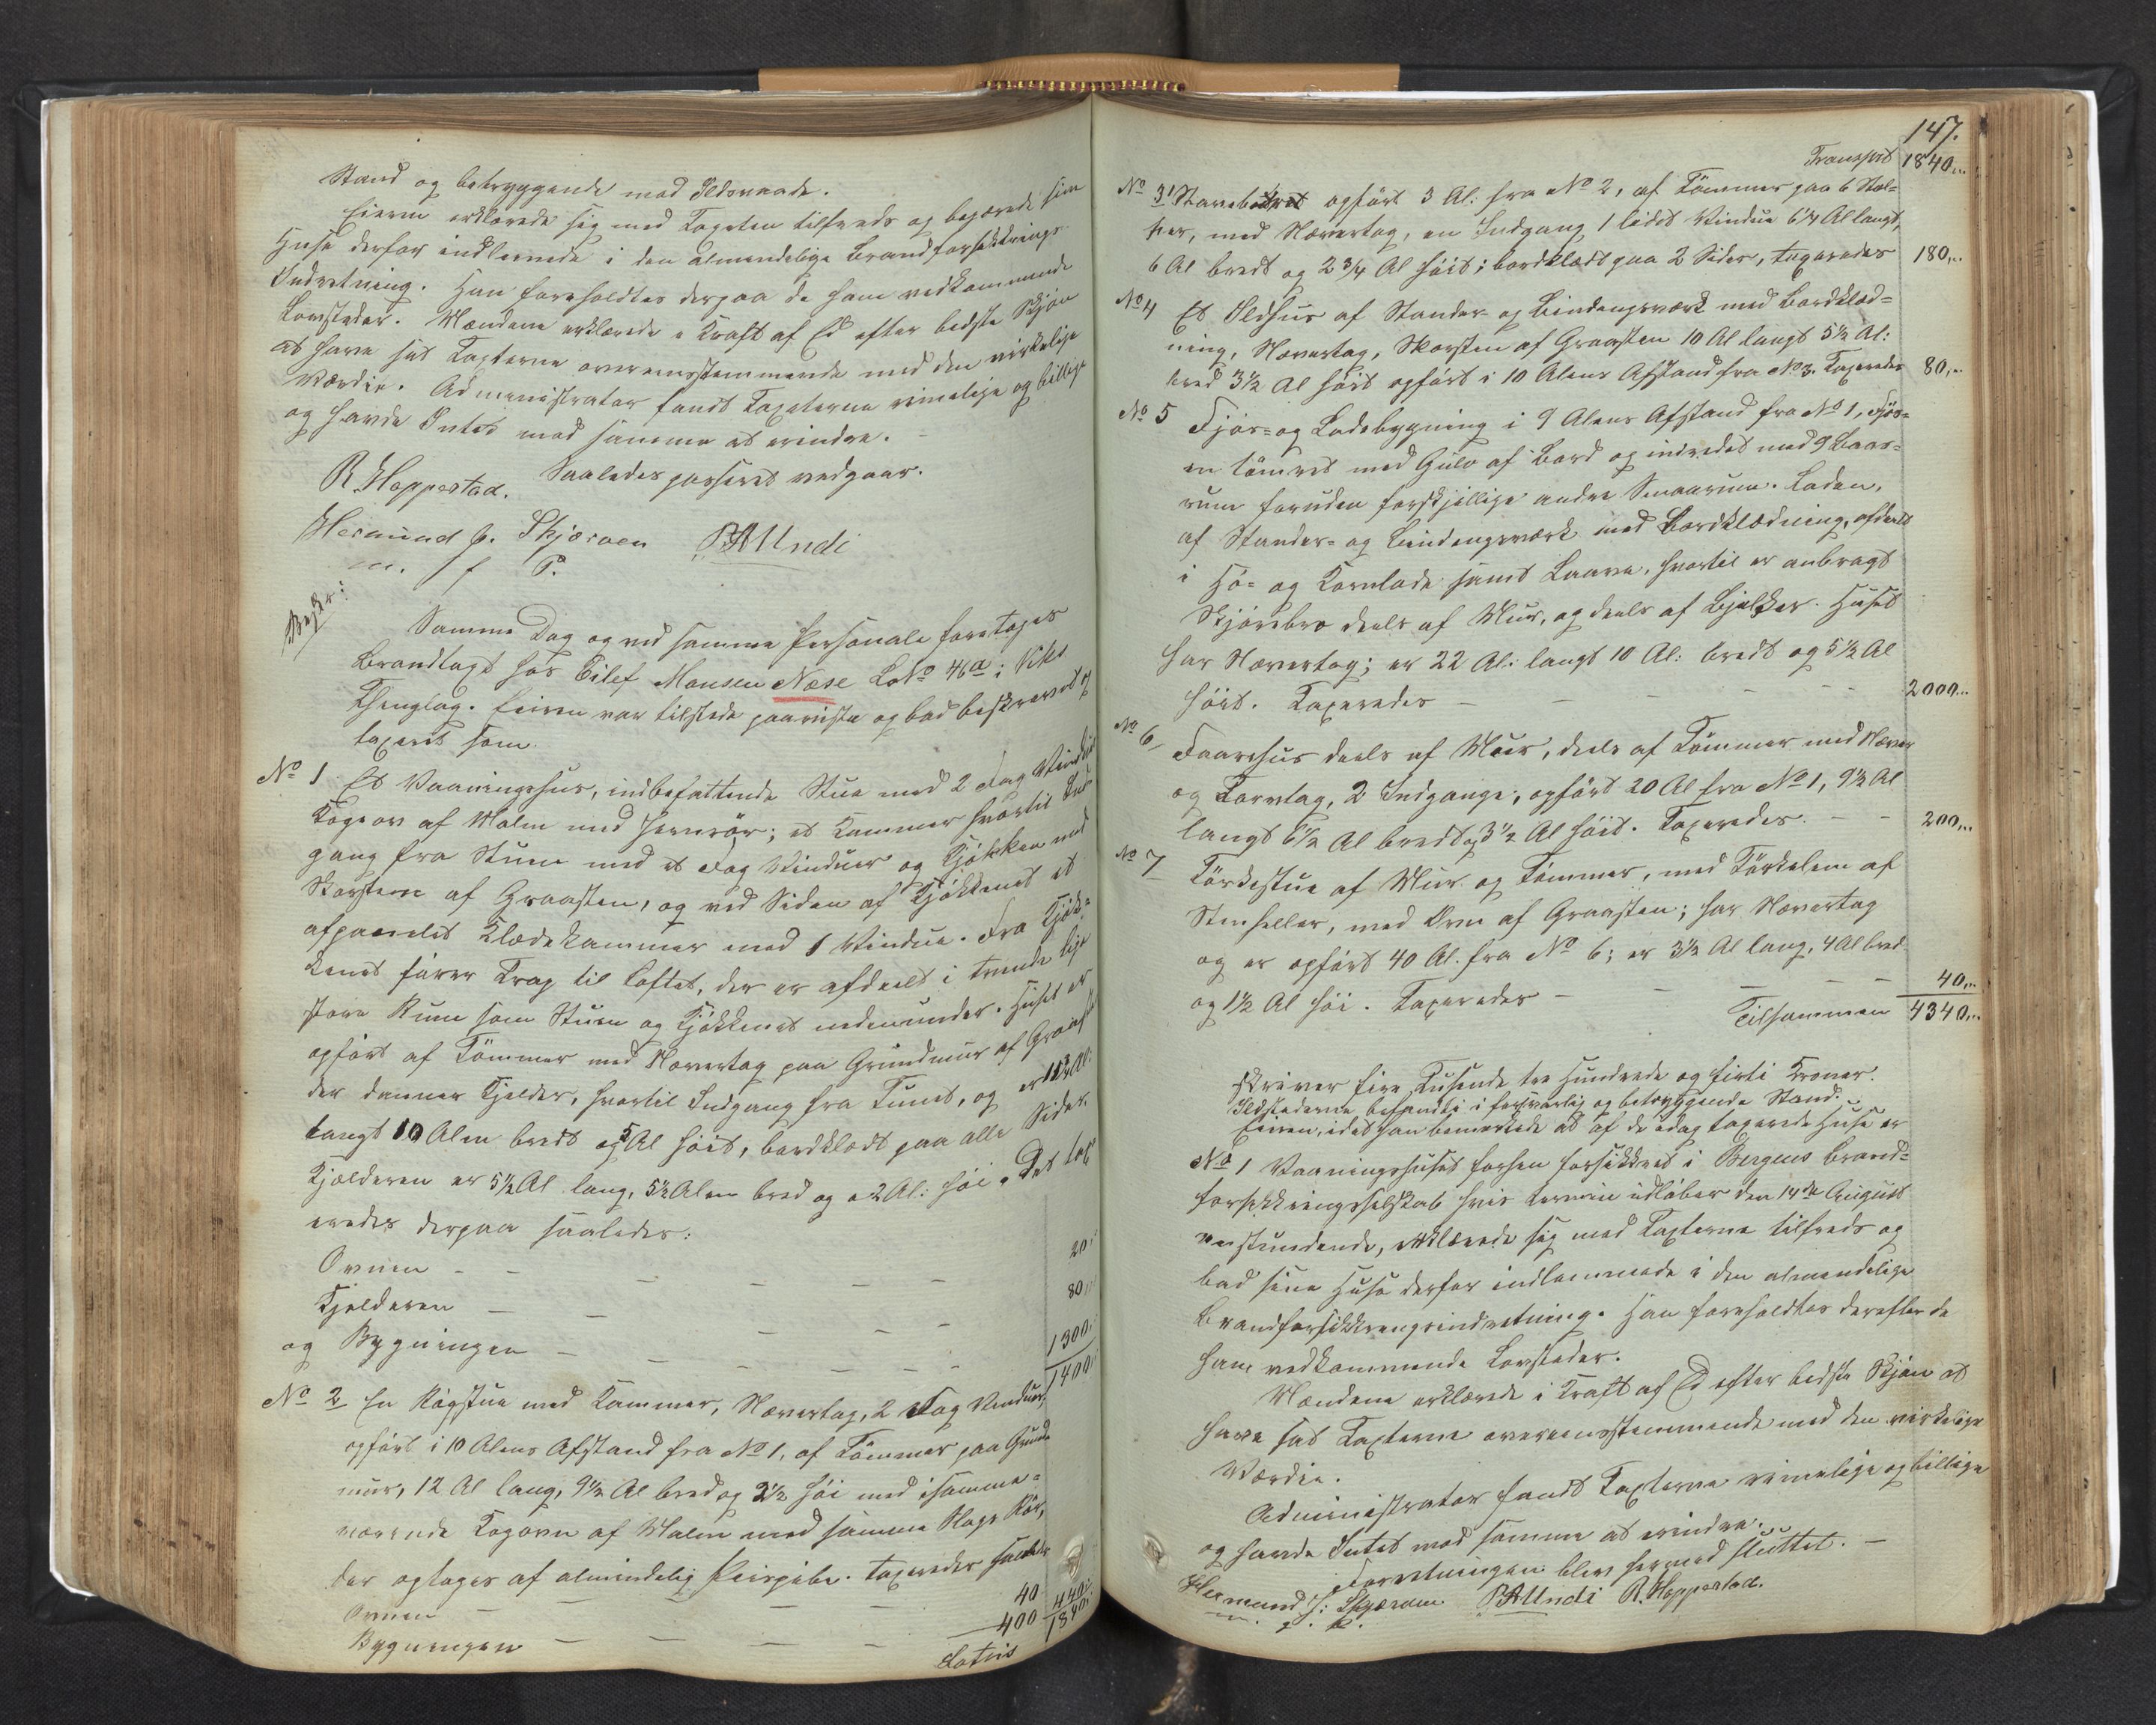 Stand og betryggende mod Ildsvaade.
Eieren erklærede sig med Taxten tilfreds og begjærede sine
Huse derfor indlemmede i den almindelige Brandforsikrings-
Indretning. Han foreholdtes derpaa de ham vedkommende
Lovsteder. Mændene erklærede i Kraft af Ed efter bedste Skjøn
at have sat Taxterne overensstemmende med den virkelige
Værdie. Administrator fandt Taxterne rimelige og billige
og havde Intet mod samme at erindre. -
Saaledes passeret vedgaar.
R. Hoppestad.
Hermund J. Skjørven BAUndi
m. f P.
Samme Dag og ved samme Personale foretoges
Brandtaxt hos Eilef Monsen Næse LNo 46a i Viks
Thinglag. Eieren var tilstede paaviste og bad beskrevet og
taxeret som
No 1 Et Vaaningshus, indbefattende Stue med 2 Fag Vinduer
Kogeovn af Malm med Jernrør; et Kammer hvortil Ind-
gang fra Stuen med et Fag Vinduer og Kjøkken med
Skorsten af Graasten, og ved Siden af Kjøkkenet et
afpanelet Klædekammer med 1 Vindue. Fra Kjøk-
kenet fører Trap til Loftet, der er afdeelt i tvende lige
store Rum som Stuen og Kjøkkenet nedenunder. Huset er
opført af Tømmer med Nævertag paa Grundmur af Graasten
der danner Kjelder, hvortil Indgang fra Tunet, og er Al:
langt 10 Alen bredt og 5 Al høit, bordklædt paa alle Sider.
Kjælderen er 5½ Al lang, 5½ Alen bred og 2 Al: høi. Det tax-
eredes derpaa saaledes:
Ovnen - - - - - - 20"
Kjelderen - - - - - 80"
og Bygningen - - - - - 1300"
1400"
No 2 En Røgstue med Kammer, Nævertag, 2 Fag Vinduer,
opført i 10 Alens Afstand fra No 1, af Tømmer paa Grund-
mur, 12 Al lang, 9½ Al bred og 3½ høi med isamme
værende Kogeovn af Malm med samme Slags Rør,
der optages af almindelig Peispibe. Taxeredes saaledes
Ovnen - - - - 40
Bygningen - - - - 400 440"
Latus 1840"
147.
Transport 1840"
No 3 Staveburet opført 3 Al: fra No 2, af Tømmer paa 6 Stol-
per, med Nævertag, en Indgang 1 lidet Vindue 6¼ Al langt,
6 Al bredt og 2¾ Al høit; bordklædt paa 2 Sider, taxeredes 180"
No 4 Et Ildhus af Stander- og Bindingsværk med Bordklæd-
ning, Nævertag, Skorsten af Graasten 10 Al langt 5½ Al:
bred 3½ Al høit opført i 10 Alens Afstand fra No 3. Taxeredes 80"
No 5 Fjøs- og Ladebygning i 9 Alens Afstand fra No 1, Fjøs-
en tømret med Gulv af Bord og indredet med 9 Baas-
rum foruden forskjellige andre Smaarum. Laden,
af Stander- og Bindingsværk med Bordklædning, afdeelt
i Hø- og Kornlade samt Laave, hvortil er anbragt
Kjørebro deels af Muur, og deels af Bjelker. Huset
har Nævertag; er 22 Al: langt 10 Al: bredt og 5½ Al
høit. Taxeredes - - - - - 2000"
No 6 Faarehus deels af Muur, deels af Tømmer med Næver
og Torvtag, 2 Indgange, opført 20 Al fra No 1, 9½ Al
langt 6½ Al bredt og 3½ Al høit. Taxeredes - - 200"
No 7 Tørkestue af Mur og Tømmer, med Tørkelem af
Stenheller, med Ovn af Graasten; har Nævertag
og er opført 40 Al. fra No 6; er 3½ Al lang, 4 Al bred
og 1½ Al høi. Taxeredes - - - - 40"
Tilsammen 4340"
skriver fire Tusende tre Hundrede og firti Kroner.
Ildstederne befandtes i forsvarlig og betryggende Stand.
Eieren, idet han bemærkede at af de idag taxerede Huse er
No 1 Vaaningshuset forhen forsikkret i Bergens Brand-
forsikkringsselskab hvis termin udløber den 14de August
næstkommende, erklærede sig med Taxterne tilfreds og
bad sine Huse derfor indlemmede i den almindelige
Brandforsikkringsindretning. Han foreholdtes derefter de
ham vedkommende Lovsteder.
Mændene erklærede i Kraft af Ed efter bedste Skjøn at
have sat Taxterne overensstemmende med den virkelige
Værdie.
Administrator fandt Taxterne rimelige og billige
og havde Intet mod samme at erindre.
Forretningen blev hermed sluttet. -
Hermund J: Skjærven BAUndi R. Hoppestad.
m. f. P.